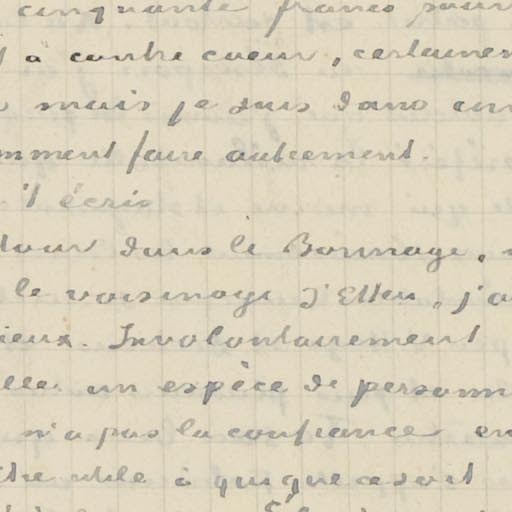 cinquante francs sans
à contre coeur, certainem
mais je suis dans un
mment faire autrement.
t'écris
tour dans le Borinage,
le voisinage d'Etten, j'a
ieux. Involontairement
elle un espèce de personn
n'a pas la confiance en
tre utile à qui que ce soit